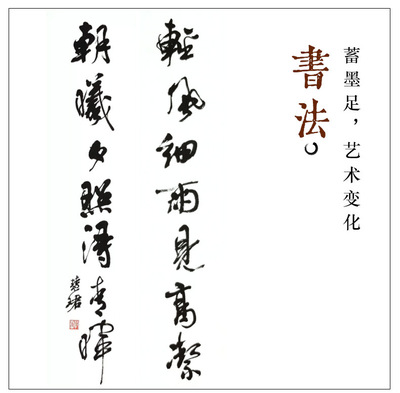 蓄墨足，艺术变化
書法。
輕風細雨見高絜
朝曦夕照得暉
慧珺